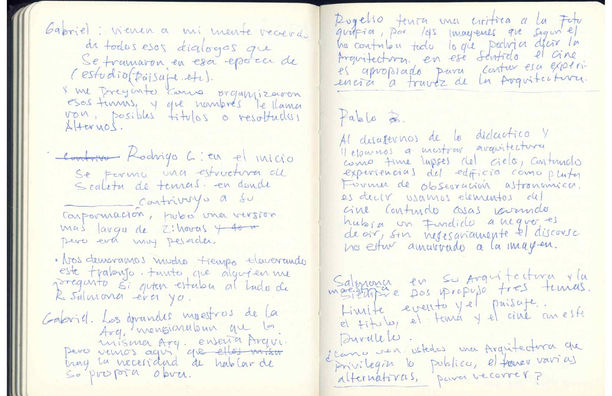 Gabriel: vienen a mi mente recuerdo
de todos esos dialogos que
se tramaron en esa epoca de
estudio (Paisaje. etc).
* me pregunto como organizaron
esos temas, y que nombres le llama
ron, posibles titulos o resultados
Alternos.
Rodrigo C: en el inicio
Se formo una estructura de
Scaleta de temas. en donde
contribuyo a su
conformación, hubo una version
mas larga de 2: horas
pero era muy pesada.
• Nos demoramos mucho tiempo elaborando
este trabajo. tanto que alguien me
pregunto si quien estaba al lado de
R. Salmona era yo.
Gabriel. Los grandes maestros de la
Arq. mencionaban que la
misma Arq. enseña Arqui.
pero vemos aqui que ellos
hay la necesidad de hablar de
su propia obra.
Rogelio tenia una critica a la Foto
grafia, por las imagenes que segun el
no contaba todo lo que podria decir la
Arquitectura. en ese sentido el cine
es apropiado para contar esa experi-
encia a travez de la Arquitectura.
Pablo
Al desasternos de lo didactico y
a mostrar arquitectura
como time lapses del cielo, contando
experiencias del edificio como plata
Forma de observacion astronomica.
es decir usamos elementos del
cine contando cosas
habia un Fundido a negro es
decir, sin necesariamente el discurso
no estar amarrado a la imagen.
Salmona en su Arquitectura y la
maestria
Siempre nos propuso tres temas.
Limite evento y el paisaje.
el titulo, el tema y el cine en este
Paralelo.
¿Como ven ustedes una Arquitectura que
privilegia lo publico, el tener varias
alternativas, para recorrer?